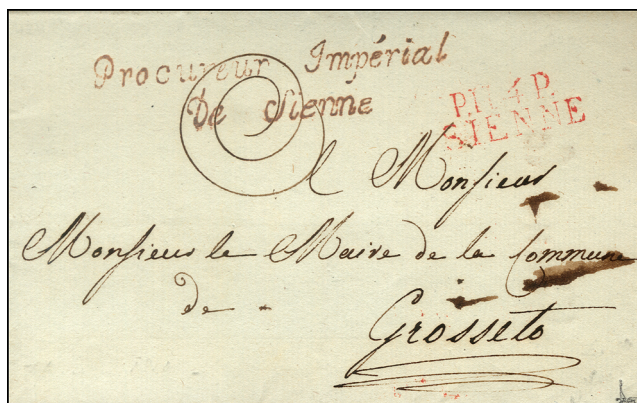 Procureur Impérial
De Sienne
P.114.P.
SIENNE
A Monsieur
Monsieur le Maire de la Commune
de
Grosseto